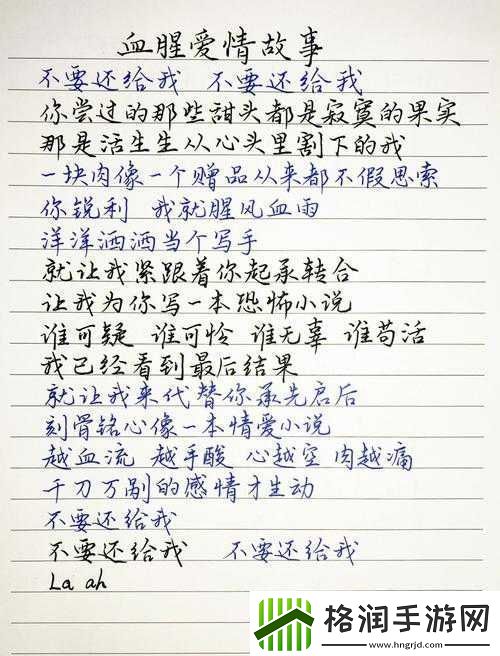 血腥爱情故事
不要还给我 不要还给我
你尝过的那些甜头都是寂寞的果实
那是活生生从心头里割下的我
一块肉像一个赠品从来都不假思索
你锐利 我就腥风血雨
洋洋洒洒当个写手
就让我紧跟着你起承转合
让我为你写一本恐怖小说
谁可疑 谁可怜 谁无辜 谁苟活
我已经看到最后结果
就让我来代替你承先启后
刻骨铭心像一本情爱小说
越血流 越手酸 心越空 肉越痛
千刀万剐的感情才生动
不要还给我
不要还给我 不要还给我
La ah
格润手游网
www.hngrjd.com